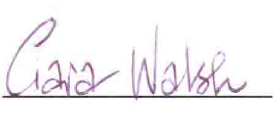 Ciara Walsh